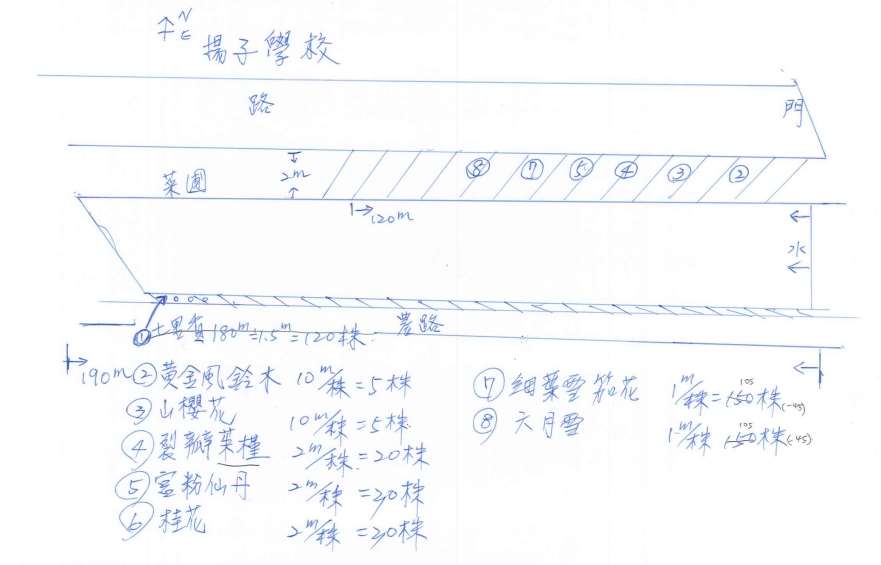 N
E
揚子學校
路
門
菜圃
2m
⑧ ⑦ ⑤ ④ ③ ②
120m
水
農路
① 十里香 180m÷1.5m=120株
190m
② 黃金風鈴木 10m/株=5株
③ 山櫻花 10m/株=5株
④ 裂瓣菜槿 2m/株=20株
⑤ 宮粉仙丹 2m/株=20株
⑥ 桂花 2m/株=20株
⑦ 細葉雪茄花 1m/株=150株 105 (-45)
⑧ 六月雪 1m/株 150株 105 (-45)